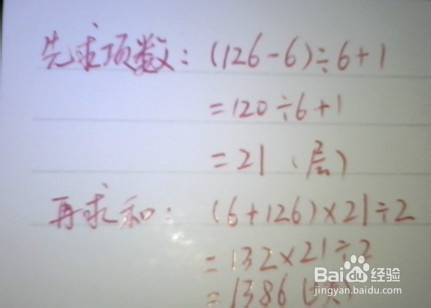 先求项数：(126-6)÷6+1
=120÷6+1
=21（层）
再求和：(6+126)×21÷2
=132×21÷2
=1386
Baidu经验
jingyan.baidu.com